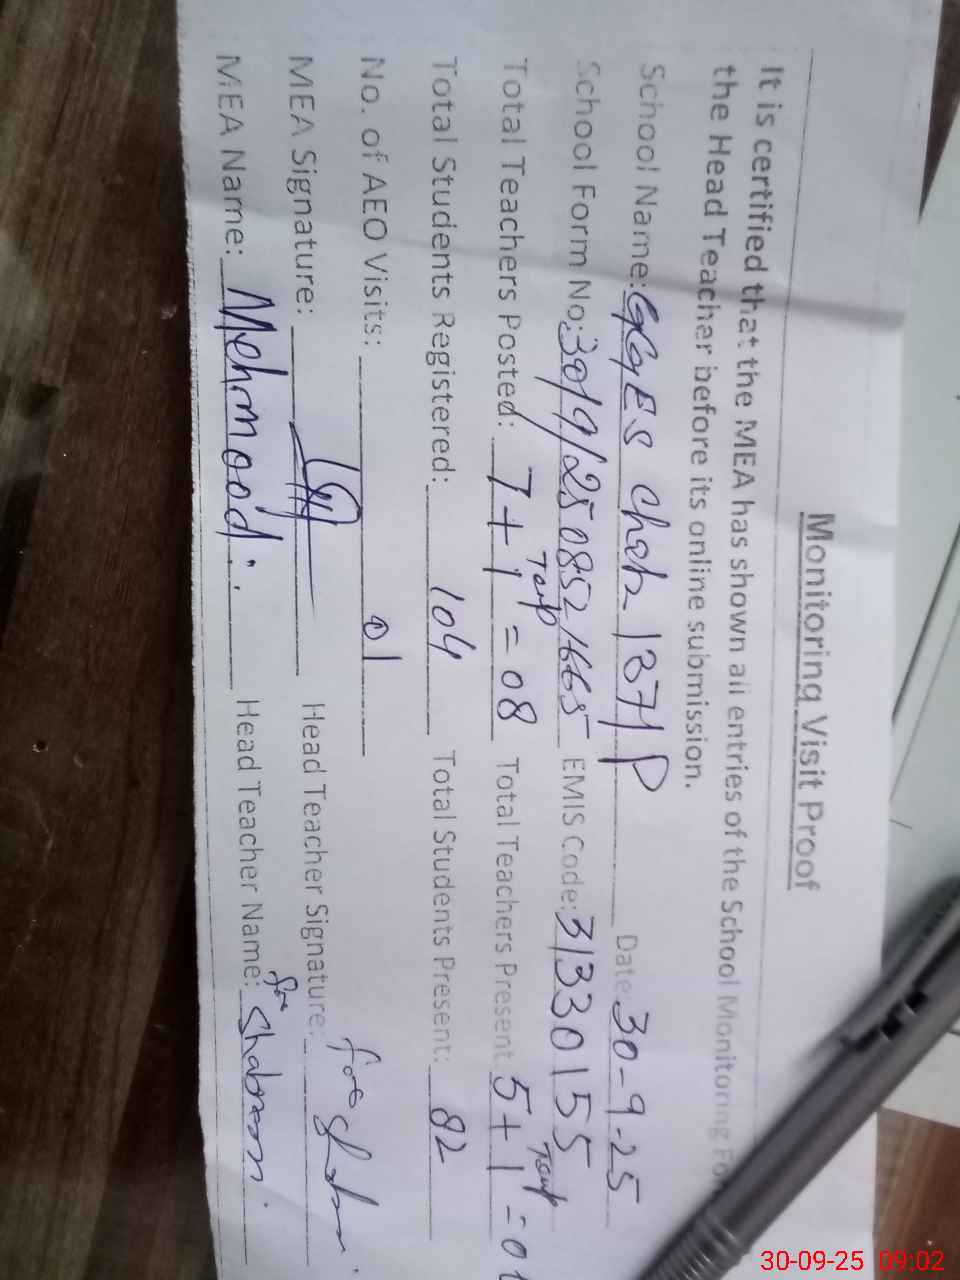 Monitoring Visit Proof
It is certified that the MEA has shown all entries of the School Monitoring For
the Head Teacher before its online submission.
School Name: GGES chak 137/P Date 30-9-25
School Form No: 3019/250852/665 EMIS Code: 31330155
Total Teachers Posted: 7+1 Temp = 08 Total Teachers Present 5+1 Temp = 0
Total Students Registered: 104 Total Students Present: 82
No. of AEO Visits: 01
MEA Signature: Head Teacher Signature: for
MEA Name: Mehmood Head Teacher Name: for Shabnam
30-09-25 09:02